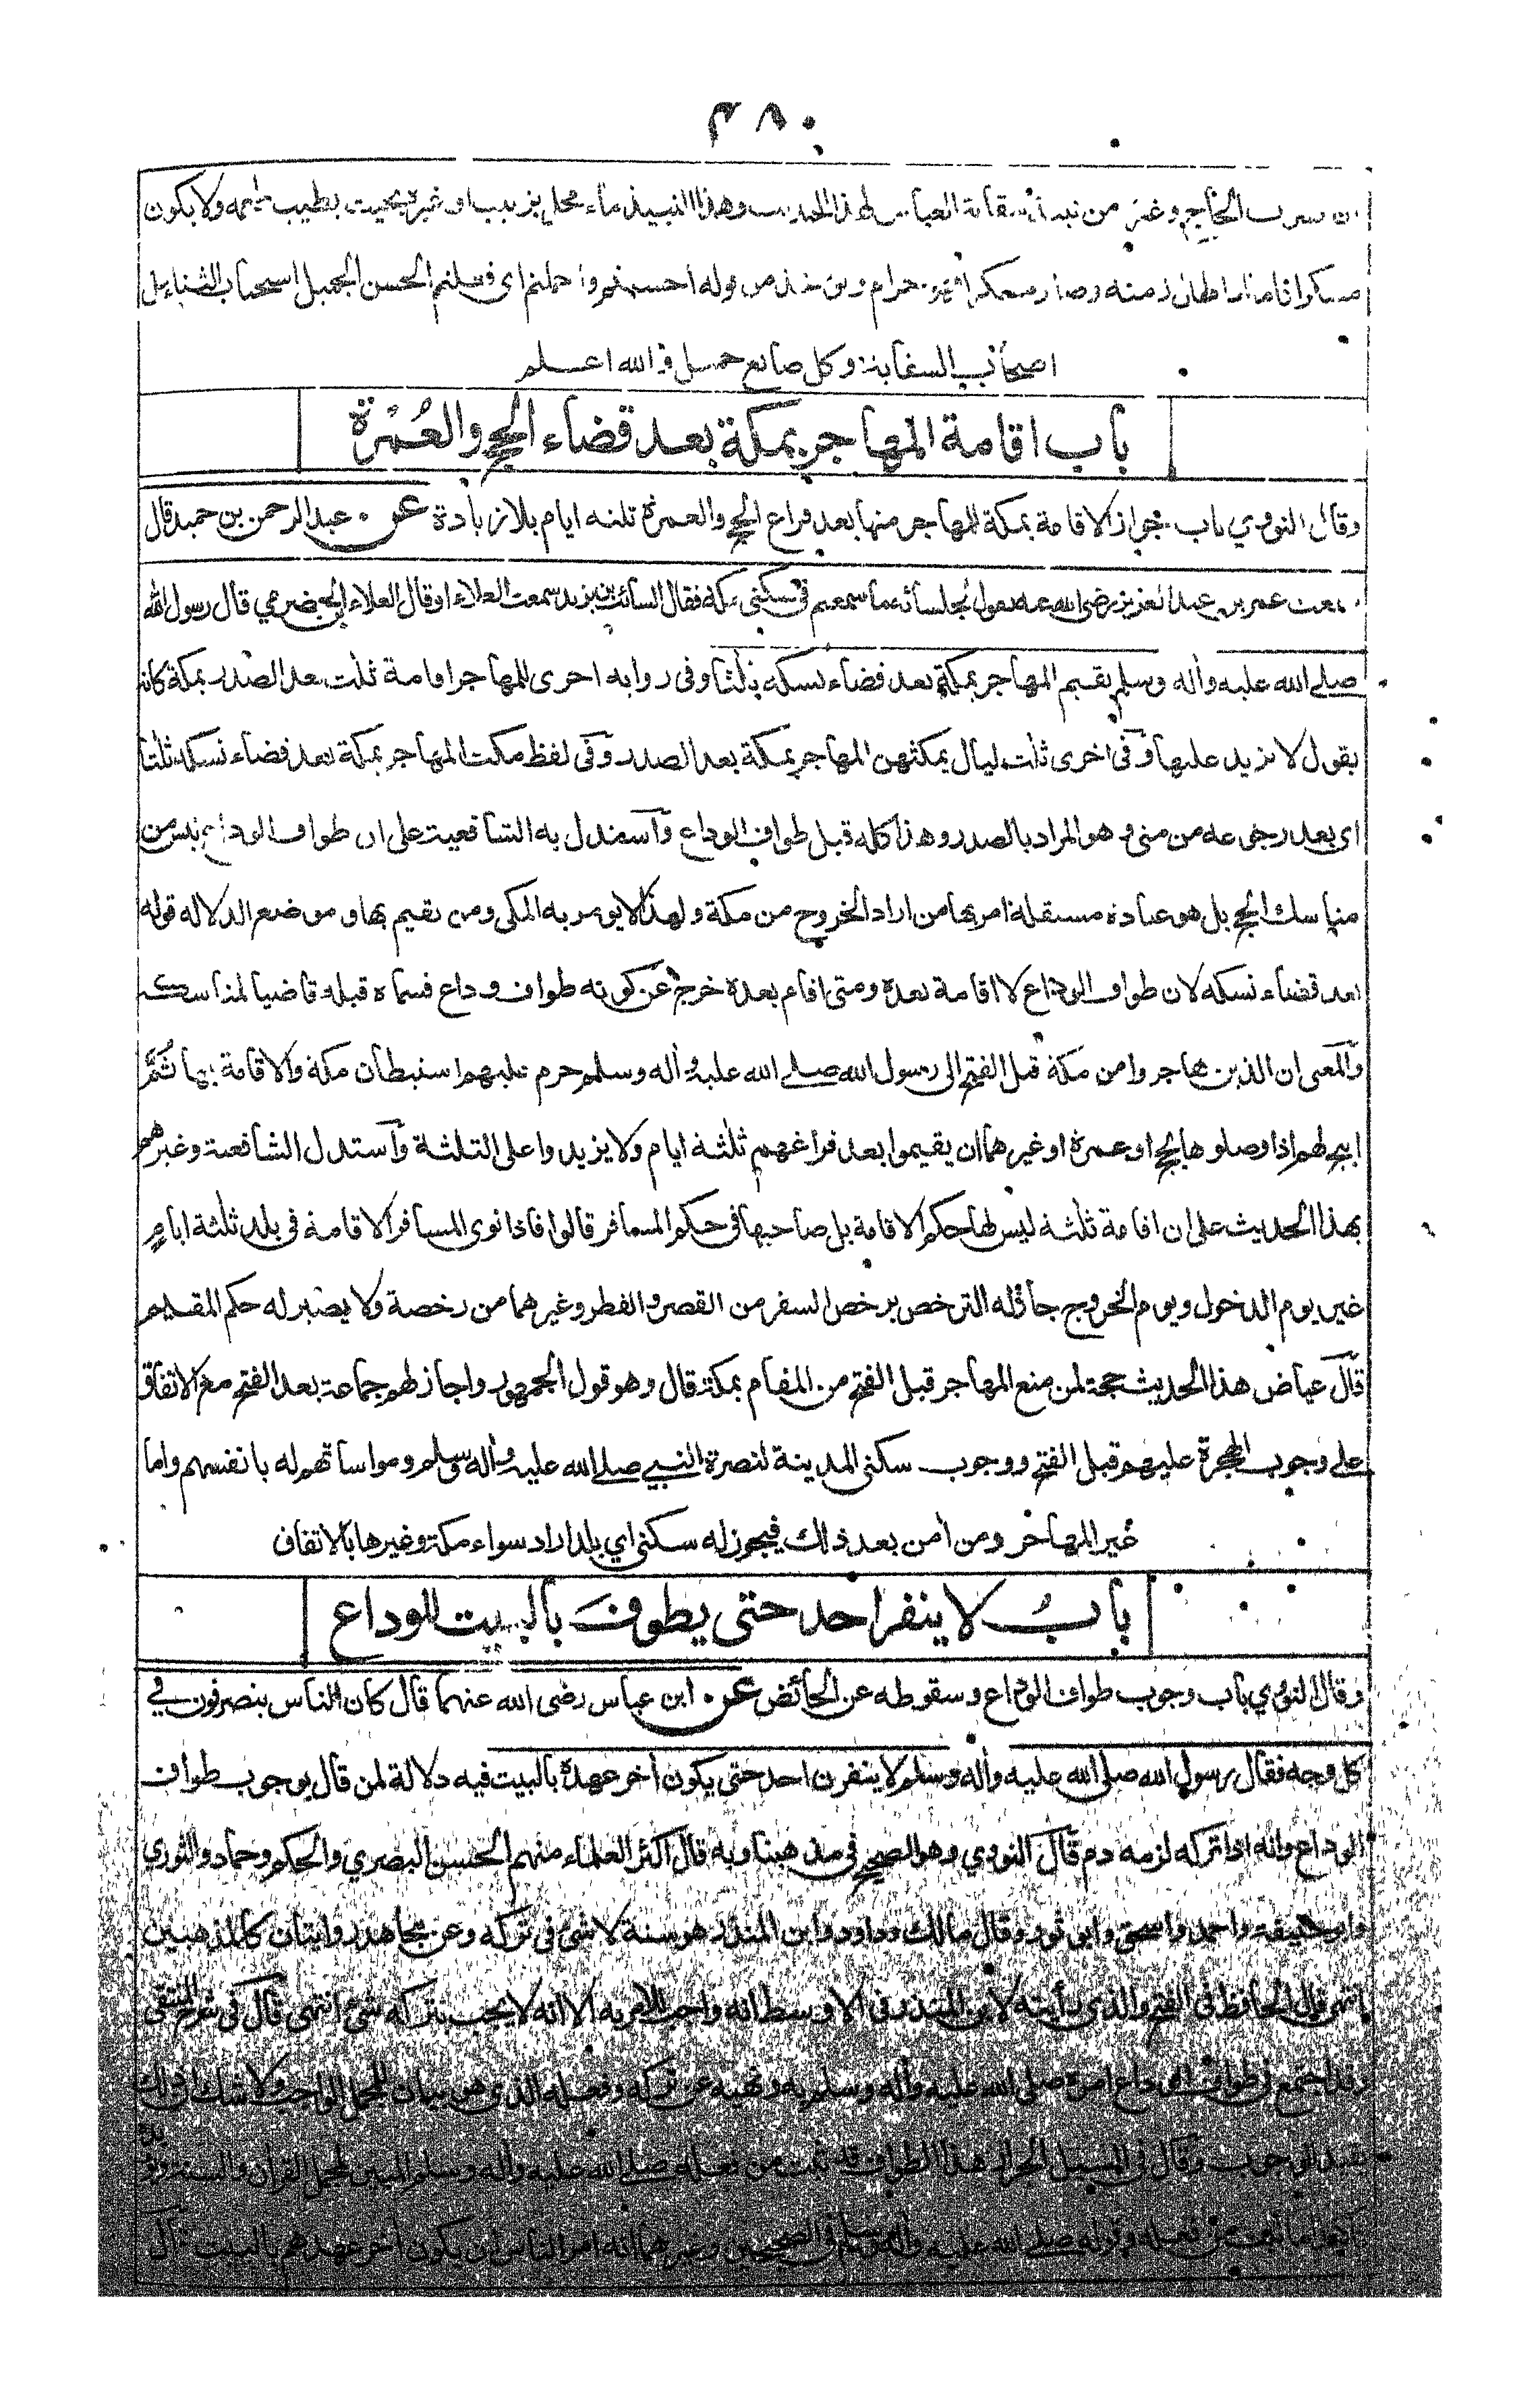 ٣٨٠
ان يشرب الحاج وغيره من نبيذ سقاية العباس لهذا الحديث وهذا النبيذ ماء محلى بزبيب او غيره بحيث يطيب طعمه ولا يكون
مسكرا فاما اذا طال زمنه وصار مسكرا فهو حرام وفي قوله احسنتم واجملتم اي فعلتم الحسن الجميل استحباب الثناء على
اصحاب السقاية وكل صانع جميل والله اعلم
باب اقامة المهاجر بمكة بعد قضاء الحج والعُمْرة
وقال النووي باب جواز الاقامة بمكة للمهاجر منها بعد فراغ الحج والعمرة ثلثه ايام بلا زيادة عن عبد الرحمن بن حميد قال
سمعت عمر بن عبد العزيز رضي الله عنه يقول لجلسائه ما سمعتم في سكنى مكة فقال السائب بن يزيد سمعت العلاء او قال العلاء ابن الحضرمي قال رسول الله
صلے الله عليه واله وسلم يقيم المهاجر بمكة بعد قضاء نسكه ثلثا وفي رواية اخرى للمهاجر اقامة ثلث بعد الصدر بمكة كانه
يقول لا يزيد عليها وفي اخرى ثلث ليال يمكثهن المهاجر بمكة بعد الصدر وفي لفظ مكث المهاجر بمكة بعد قضاء نسكه ثلثا
اي بعد رجوعه من منى وهو المراد بالصدر وهذا كله قبل طواف الوداع واستدل به الشافعية على ان طواف الوداع ليس من
مناسك الحج بل هو عبادة مستقلة امر بها من اراد الخروج من مكة ولهذا لا يومر به المكي ومن يقيم بها وموضع الدلاله قوله
بعد قضاء نسكه لان طواف الوداع لا اقامة بعده ومتى اقام بعده خرج عن كونه طواف وداع فسماه قبله قاضيا لمناسكه
والمعنى ان الذين هاجروا من مكة قبل الفتح الى رسول الله صلے الله عليه واله وسلم حرم عليهم استيطان مكة والاقامة بها ثُمَّ
ابيح لهم اذا وصلوها بحج او عمرة او غيرهما ان يقيموا بعد فراغهم ثلثة ايام ولا يزيدوا على الثلثة واستدل الشافعية وغيرهم
بهذا الحديث على ان اقامة ثلثة ليس لها حكم الاقامة بل صاحبها في حكم المسافر قالوا فاذا نوى المسافر الاقامة في بلد ثلثة ايام
غير يوم الدخول ويوم الخروج جاز له الترخص برخص السفر من القصر والفطر وغيرهما من رخصة ولا يصير له حكم المقيم
قال عياض هذا الحديث حجة لمن منع المهاجر قبل الفتح من المقام بمكة قال وهو قول الجمهور واجاز لهم جماعة بعد الفتح مع الاتفاق
على وجوب الهجرة عليهم قبل الفتح ووجوب سكنى المدينة لنصرة النبي صلے الله عليه واله وسلم ومواساتهم له بانفسهم واما
غير المهاجر ومن امن بعد ذلك فيجوز له سكنى اي بلد اراد سواء مكة وغيرها بالاتفاق
بابُ لا ينفر احد حتى يطوفَ بالبيت للوداع
وقال النووي باب وجوب طواف الوداع وسقوطه عن الحائض عن ابن عباس رضي الله عنهما قال كان الناس ينصرفون في
كل وجه فقال رسول الله صلى الله عليه واله وسلم لا ينفرن احد حتى يكون اخر عهده بالبيت فيه دلالة لمن قال بوجوب طواف
الوداع وانه اذا تركه لزمه دم قال النووي وهو الصحيح في مذهبنا وبه قال اكثر العلماء منهم الحسن البصري والحكم وحماد والثوري
وابو حنيفة واحمد واسحق وابو ثور وقال مالك وداود وابن المنذر هو سنة لا شئ في تركه وعن مجاهد روايتان كالمذهبين
انتهى قال الحافظ في الفتح والذي رأيته لابن المنذر في الاوسط انه واجب للامر به الا انه لا يجب بتركه شئ انتهى قال في شرح المنتقى
وقد اجتمع في طواف الوداع امره صلى الله عليه واله وسلم به ونهيه عن تركه وفعله الذي هو بيان للمجمل الواجب ولا شك ان ذلك
يفيد الوجوب وقال في السيل الجرار هذا الطواف قد ثبت من فعله صلے الله عليه واله وسلم المبين لمجمل القران والسنة
فعله وقوله صلے الله عليه واله وسلم في الصحيحين وغيرهما انه امر الناس ان يكون اخر عهدهم بالبيت